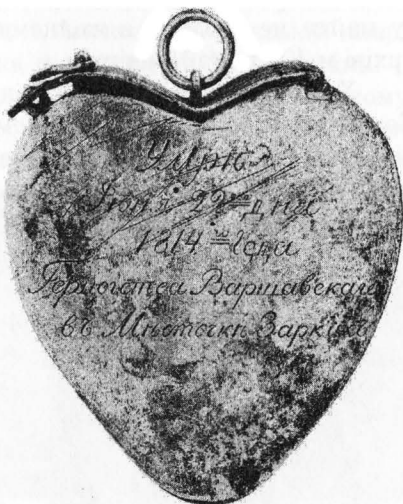 Умрѣ
Іюня 22 = дня
1814 = года
Герцогства Варшавскаго
въ Мѣстечкѣ Заркахъ